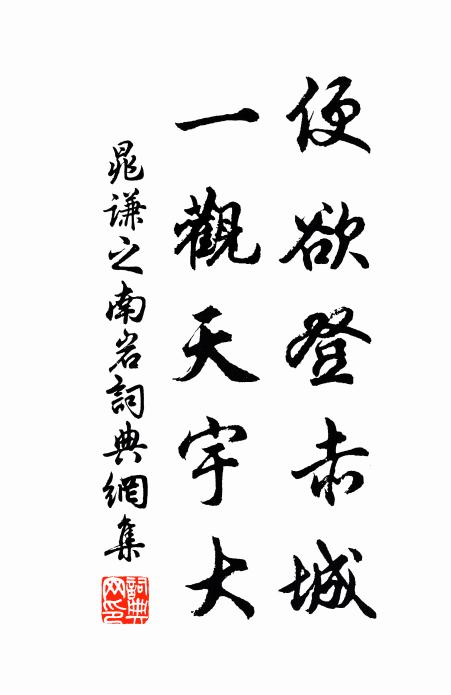 便欲登赤城
一觀天宇大
晁谦之南岩詞典網集
詞典網印